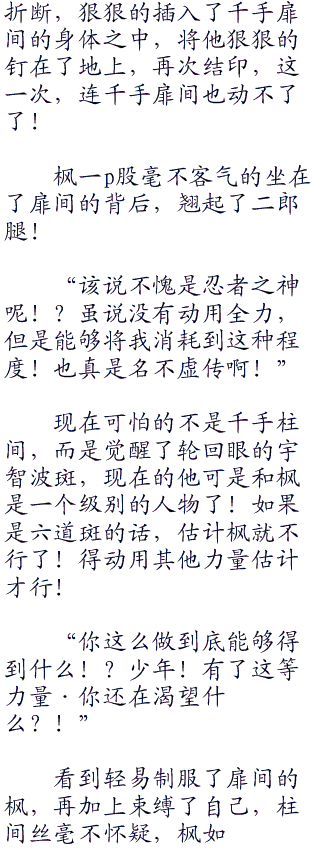 折断，狠狠的插入了千手扉
间的身体之中，将他狠狠的
钉在了地上，再次结印，这
一次，连千手扉间也动不了
了！
枫一p股毫不客气的坐在
了扉间的背后，翘起了二郎
腿！
“该说不愧是忍者之神
呢！？虽说没有动用全力，
但是能够将我消耗到这种程
度！也真是名不虚传啊！”
现在可怕的不是千手柱
间，而是觉醒了轮回眼的宇
智波斑，现在的他可是和枫
是一个级别的人物了！如果
是六道斑的话，估计枫就不
行了！得动用其他力量估计
才行！
“你这么做到底能够得
到什么！？少年！有了这等
力量·你还在渴望什
么？！”
看到轻易制服了扉间的
枫，再加上束缚了自己，柱
间丝毫不怀疑，枫如